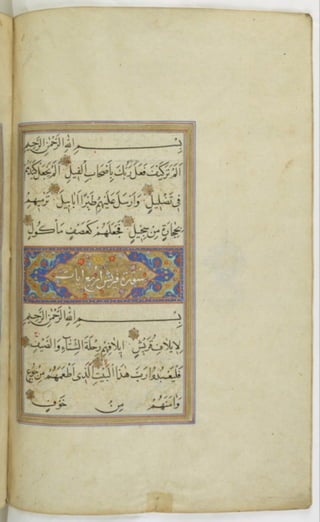 بسم الله الرحمن الرحيم
الم تر كيف فعل ربك باصحاب الفيل الم يجعل كيدهم
في تضليل وارسل عليهم طيرا ابابيل ترميهم
بحجارة من سجيل فجعلهم كعصف ماكول
سورة قريش اربع ايات
بسم الله الرحمن الرحيم
لايلاف قريش ايلافهم رحلة الشتاء والصيف
فليعبدوا رب هذا البيت الذي اطعمهم من جوع
وآمنهم من خوف